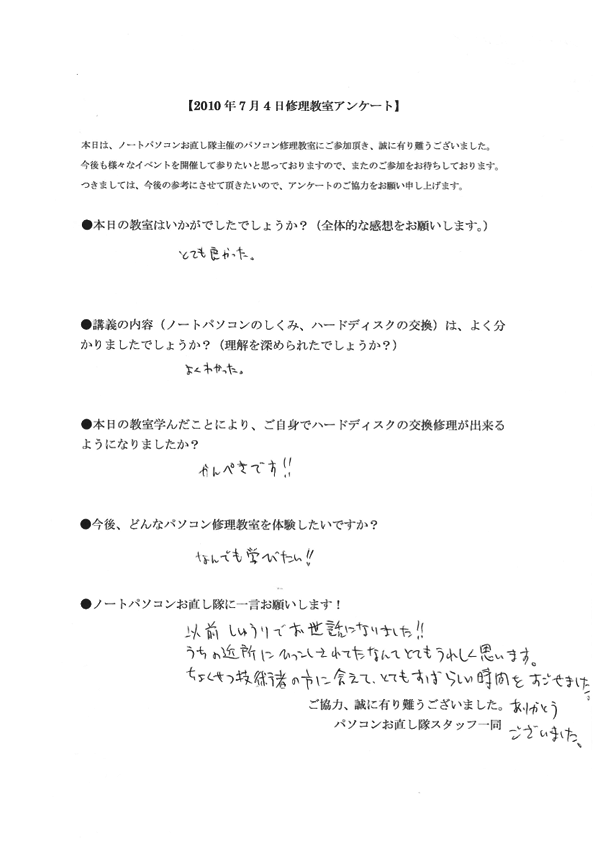 【2010年7月4日修理教室アンケート】
本日は、ノートパソコンお直し隊主催のパソコン修理教室にご参加頂き、誠に有り難うございました。
今後も様々なイベントを開催して参りたいと思っておりますので、またのご参加をお待ちしております。
つきましては、今後の参考にさせて頂きたいので、アンケートのご協力をお願い申し上げます。
●本日の教室はいかがでしたでしょうか？（全体的な感想をお願いします。）
とても良かった。
●講義の内容（ノートパソコンのしくみ、ハードディスクの交換）は、よく分
かりましたでしょうか？（理解を深められたでしょうか？）
よくわかった。
●本日の教室学んだことにより、ご自身でハードディスクの交換修理が出来る
ようになりましたか？
かんぺきです!!
●今後、どんなパソコン修理教室を体験したいですか？
なんでも学びたい!!
●ノートパソコンお直し隊に一言お願いします！
以前しゅうりでお世話になりました!!
うちの近所にひっこしされてたなんてとてもうれしく思います。
ちょくせつ技術者の方に会えて、とてもすばらしい時間をすごせました。
ご協力、誠に有り難うございました。ありがとう
パソコンお直し隊スタッフ一同 ございました。